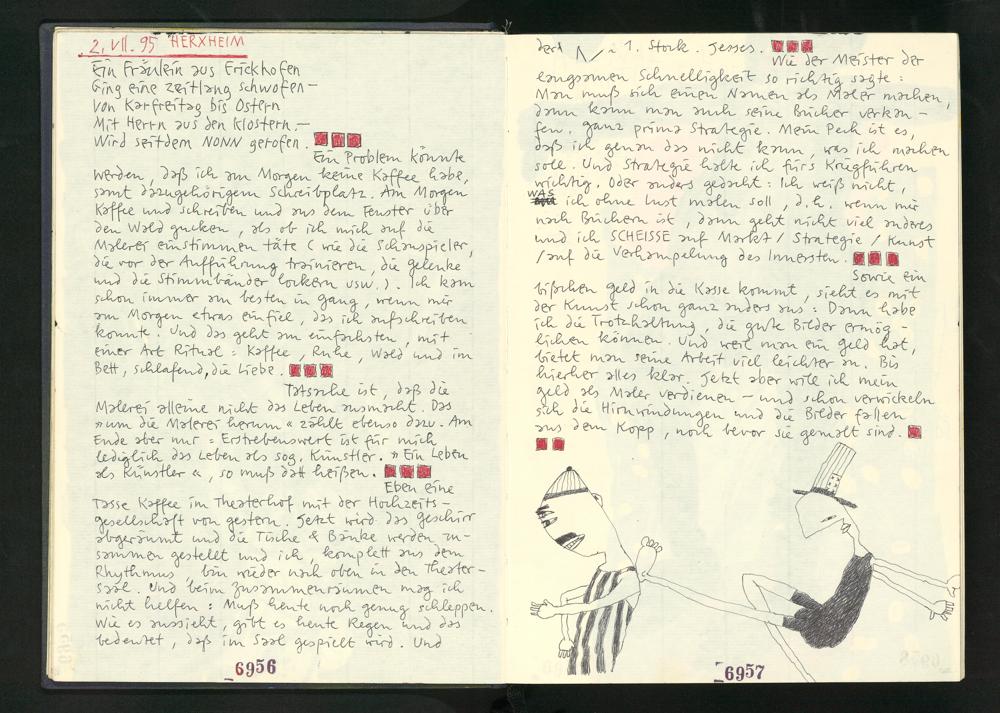 2. VII. 95 HERXHEIM
Ein Fräulein aus Erickhofen
Ging eine zeitlang schwofen –
Von Karfreitag bis Ostern
Mit Herrn aus den Klostern. –
Wird seitdem NONN gerofen.
Ein Problem könnte
werden, daß ich am Morgen keine Kaffee habe,
samt dazugehörigem Schreibplatz. Am Morgen
Kaffee und schreiben und aus dem Fenster über
den Wald gucken, als ob ich mich auf die
Malerei einstimmen täte (wie die Schauspieler,
die vor der Aufführung trainieren, die Gelenke
und die Stimmbänder lockern usw.). Ich kam
schon immer am besten in Gang, wenn mir
am Morgen etwas einfiel, das ich aufschreiben
konnte. Und das geht am einfachsten, mit
einer Art Ritual: Kaffee, Ruhe, Wald und im
Bett, schlafend, die Liebe.
Tatsache ist, daß die
Malerei alleine nicht das Leben ausmacht. Das
»um die Malerei herum« zählt ebenso dazu. Am
Ende aber nur: Erstrebenswert ist für mich
lediglich das Leben als sog. Künstler. »Ein Leben
als Künstler«, so muß datt heißen.
Eben eine
Tasse Kaffee im Theaterhof mit der Hochzeits-
gesellschaft von gestern. Jetzt wird das Geschirr
abgeräumt und die Tische & Bänke werden zu-
sammen gestellt und ich, komplett aus dem
Rhythmus, bin wieder nach oben in den Theater-
saal. Und beim Zusammenräumen mag ich
nicht helfen: Muß heute noch genug schleppen.
Wie es aussieht, gibt es heute Regen und das
bedeutet, daß im Saal gespielt wird. Und
6956
1. Stock. Jesses.
Wie der Meister der
langsamen Schnelligkeit so richtig sagte:
Man muß sich einen Namen als Maler machen,
dann kann man auch seine Bücher verkau-
fen. Ganz prima Strategie. Mein Pech ist es,
daß ich genau das nicht kann, was ich machen
soll. Und Strategie halte ich für's Kriegführen
wichtig. Oder anders gedacht: Ich weiß nicht,
WAS ich ohne Lust malen soll, d.h. wenn mir
nach Büchern ist, dann geht nicht viel anderes
und ich SCHEISSE auf Markt / Strategie / Kunst
/ auf die Verhampelung des Innersten.
Sowie ein
bißchen Geld in die Kasse kommt, sieht es mit
der Kunst schon ganz anders aus: Dann habe
ich die Trotzhaltung, die gute Bilder ermög-
lichen können. Und weil man ein Geld hat,
bietet man seine Arbeit viel leichter an. Bis
hierher alles klar. Jetzt aber will ich mein
Geld als Maler verdienen – und schon verwickeln
sich die Hirnwindungen und die Bilder fallen
aus dem Kopp, noch bevor sie gemalt sind.
6957